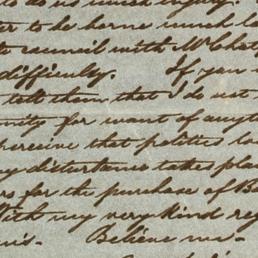 to do us much injury.
to be borne much l
to council with Mr Chat
difficulty. If you
tell them that I do not
for want of any
perceive that politics
disturbance takes pla
for the purchase of B
With my very kind reg
Believe me-